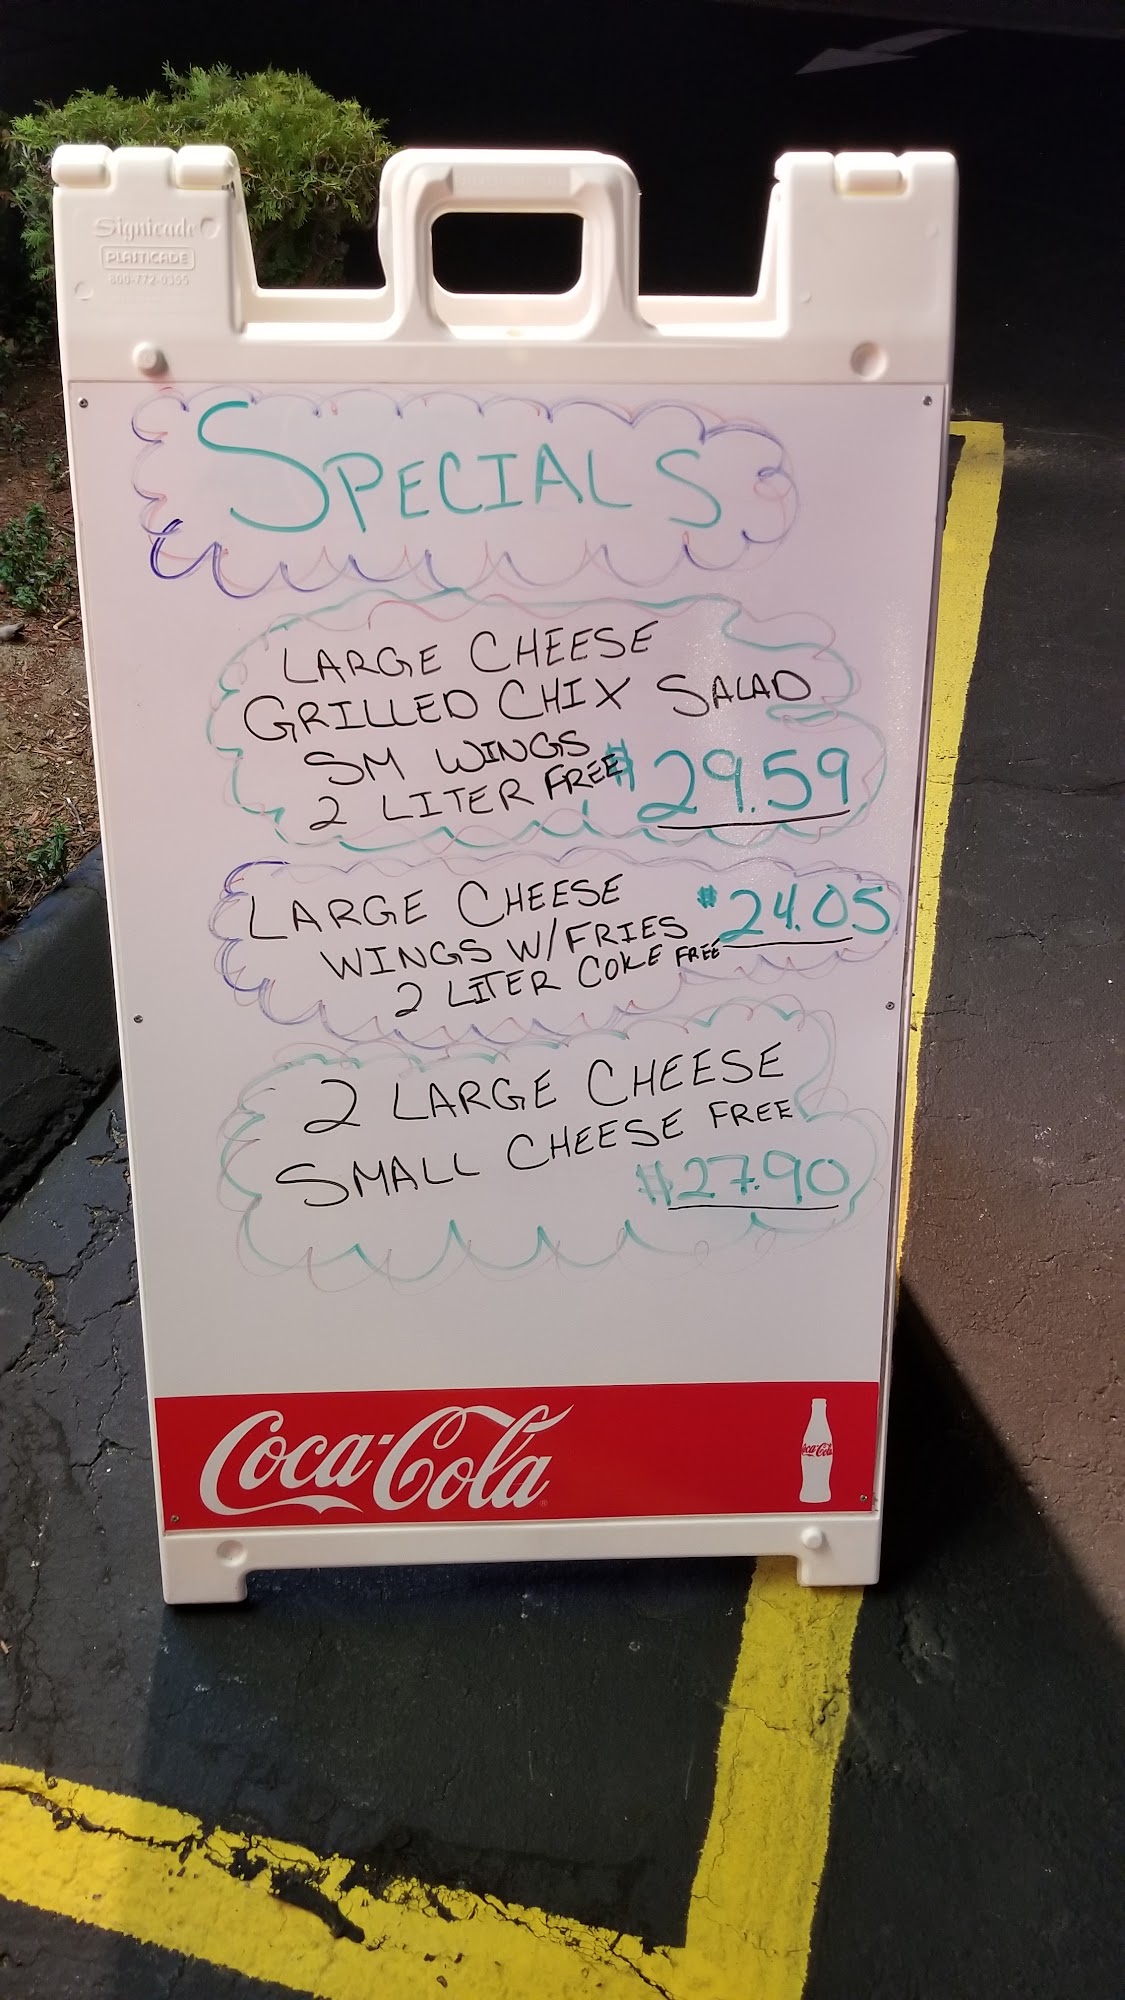 Signicade
PLASTICADE
800-772-0355
SPECIALS
LARGE CHEESE
GRILLED CHIX SALAD
SM WINGS
2 LITER FREE $29.59
LARGE CHEESE $24.05
WINGS W/FRIES
2 LITER COKE FREE
2 LARGE CHEESE
SMALL CHEESE FREE
$27.90
Coca-Cola
Coca-Cola